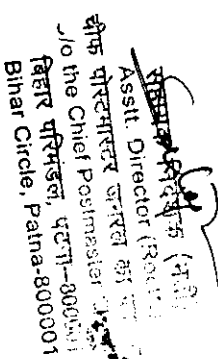 सहायक निदेशक (भर्ती)
Asstt. Director (Rectt.
चीफ पोस्टमास्टर जनरल का
O/o the Chief Postmaster
बिहार परिमंडल, पटना-800001
Bihar Circle, Patna-800001